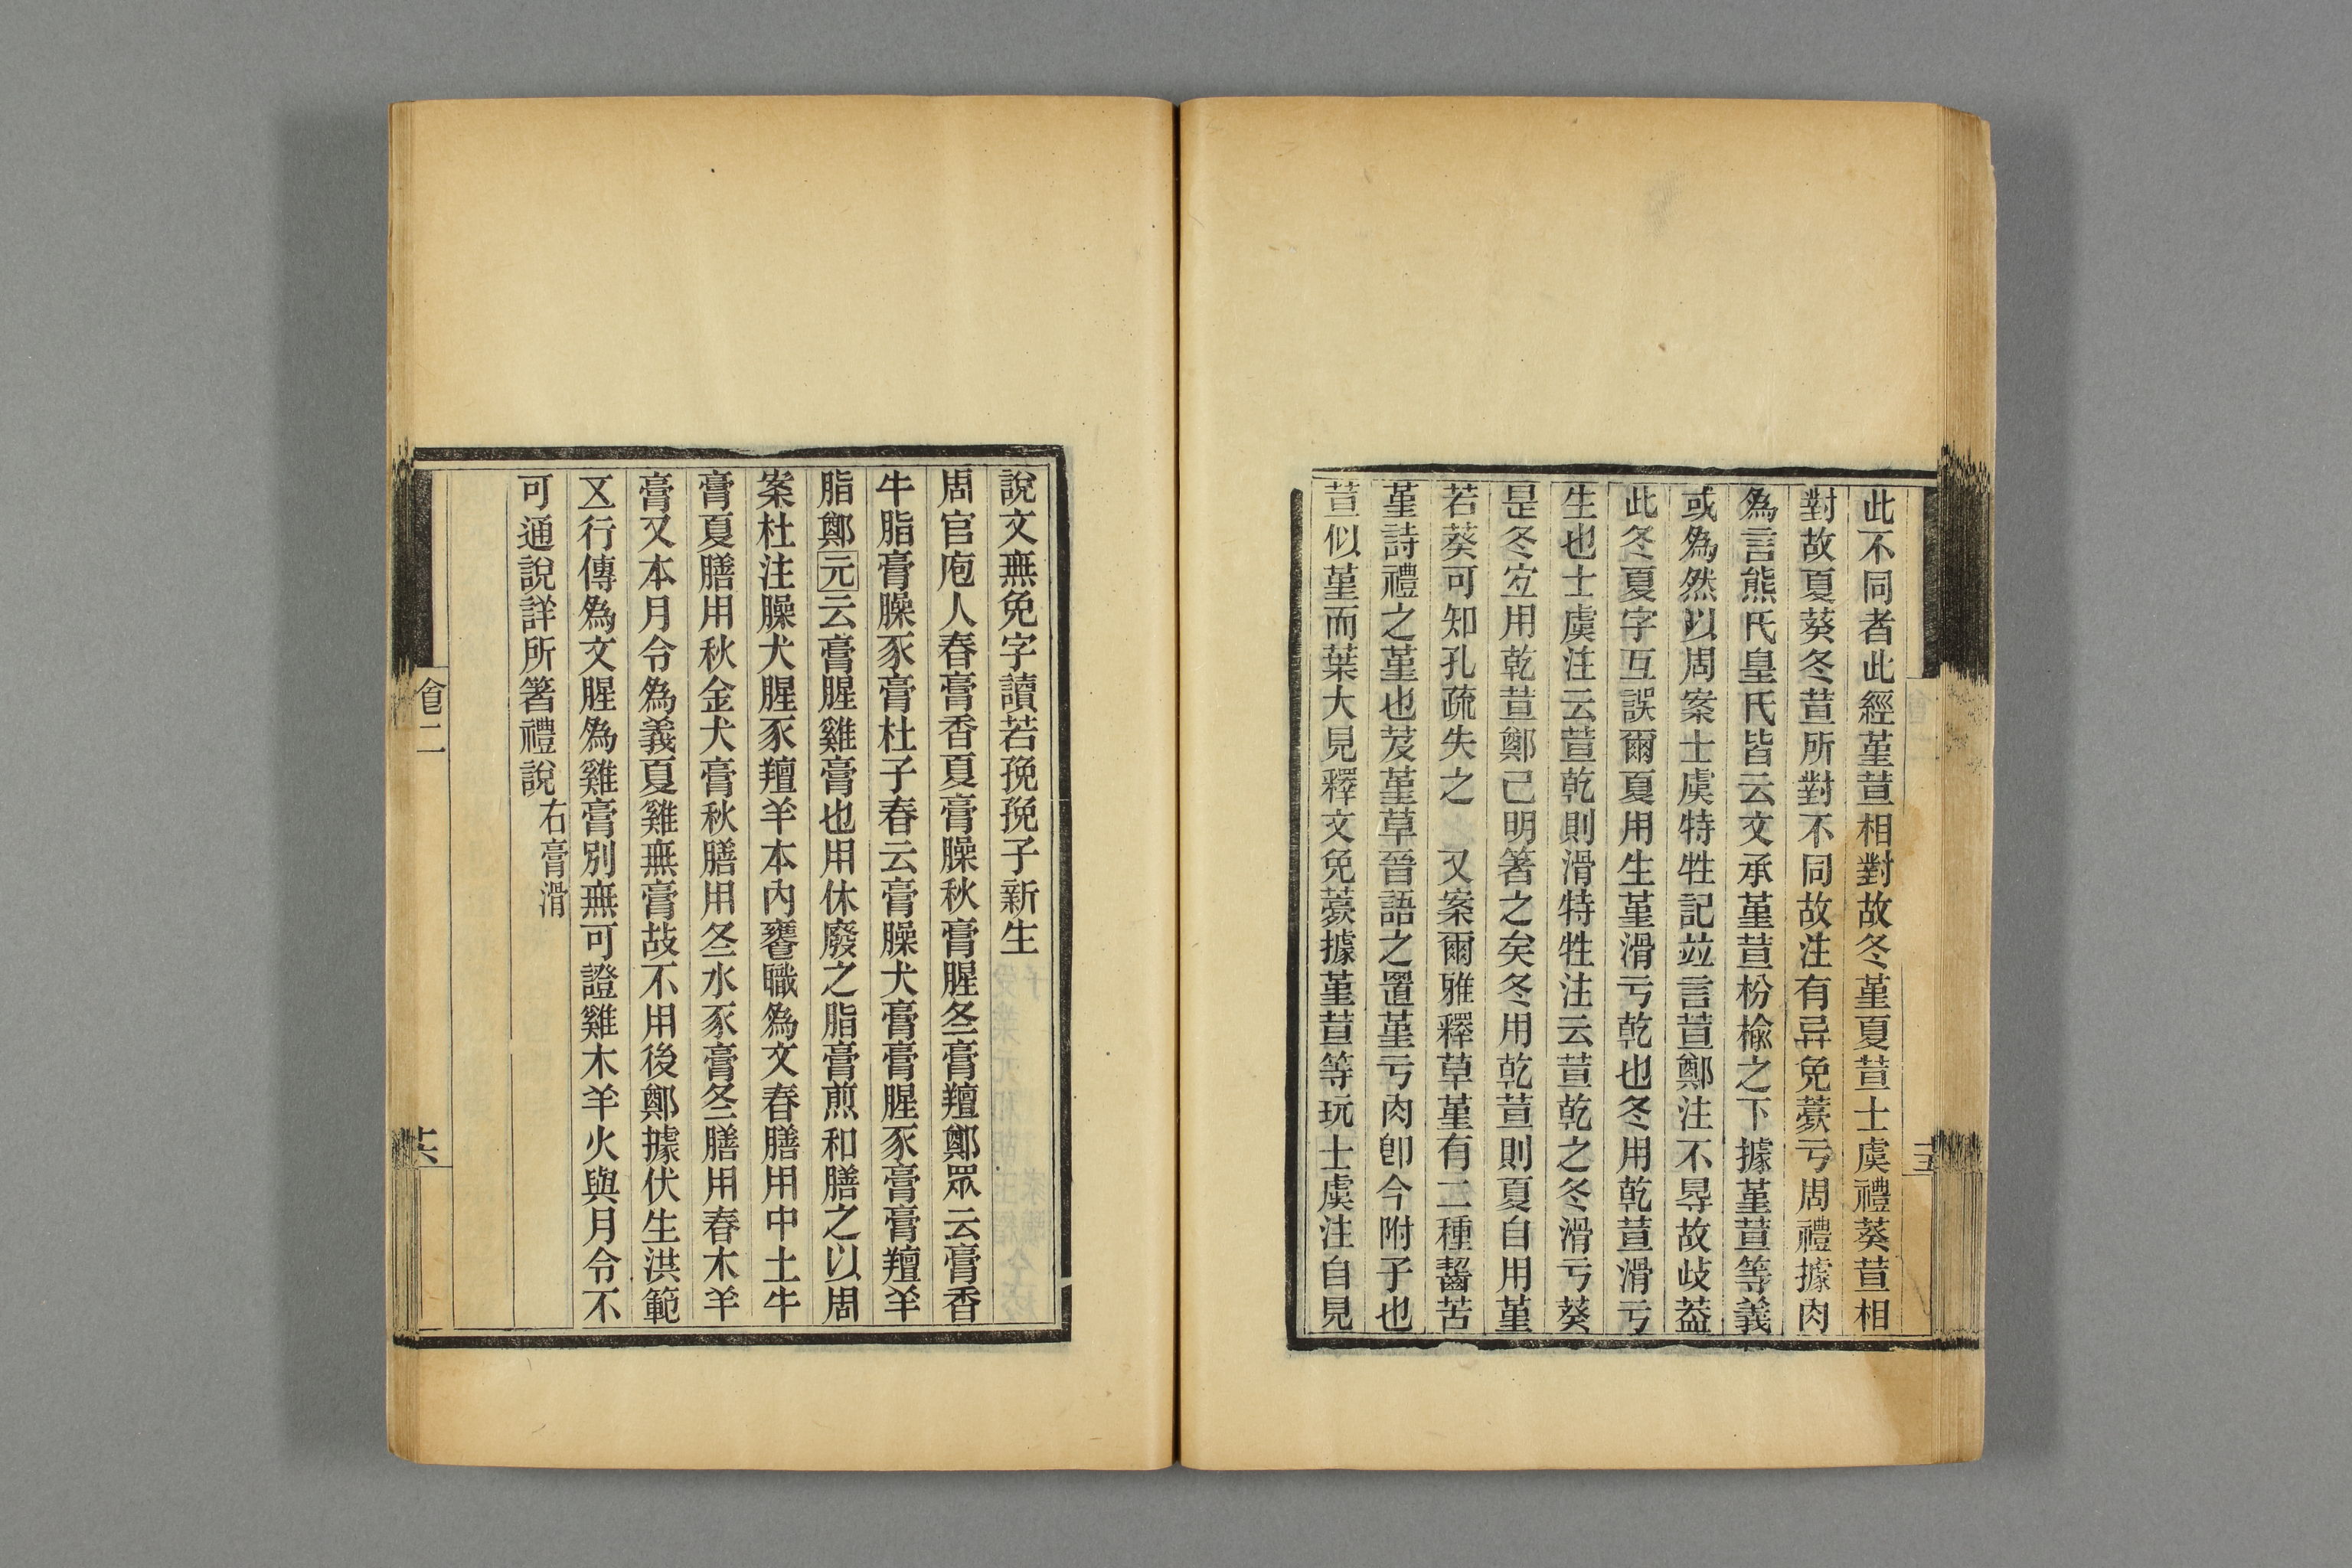 此不同者此經堇荁相對故冬堇夏荁士虞禮葵荁相
對故夏葵冬荁所對不同故注有异免薧亏周禮據肉
爲言熊氏皇氏皆云文承堇荁枌榆之下據堇荁等義
或爲然以周案士虞特牲記竝言荁鄭注不㝵故歧葢
此冬夏字互誤爾夏用生堇滑亏乾也冬用乾荁滑亏
生也士虞注云荁乾則滑特牲注云荁乾之冬滑亏葵
是冬宐用乾荁鄭己明箸之矣冬用乾荁則夏自用堇
若葵可知孔疏失之　又案爾雅釋草堇有二種齧苦
堇詩禮之堇也芨堇草晉語之置堇亏肉卽今附子也
荁似堇而葉大見釋文免薧據堇荁等玩士虞注自見
說文無免字讀若㝃㝃子新生
周官庖人春膏香夏膏臊秋膏腥冬膏羶鄭眾云膏香
牛脂膏臊豕膏杜子春云膏臊犬膏膏腥豕膏膏羶羊
脂鄭元云膏腥雞膏也用休廢之脂膏煎和膳之以周
案杜注臊犬腥豕羶羊本內饔職爲文春膳用中土牛
膏夏膳用秋金犬膏秋膳用冬水豕膏冬膳用春木羊
膏又本月令爲義夏雞無膏故不用後鄭據伏生洪範
五行傳爲文腥爲雞膏別無可證雞木羊火與月令不
可通說詳所箸禮說右膏滑
食二
十六
十五